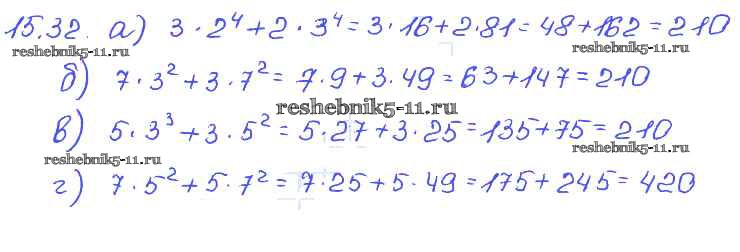 15.32. а) 3 · 2⁴ + 2 · 3⁴ = 3 · 16 + 2 · 81 = 48 + 162 = 210
reshebnik5-11.ru reshebnik5-11.ru
б) 7 · 3² + 3 · 7² = 7 · 9 + 3 · 49 = 63 + 147 = 210
reshebnik5-11.ru
в) 5 · 3³ + 3 · 5² = 5 · 27 + 3 · 25 = 135 + 75 = 210
reshebnik5-11.ru reshebnik5-11.ru
г) 7 · 5² + 5 · 7² = 7 · 25 + 5 · 49 = 175 + 245 = 420